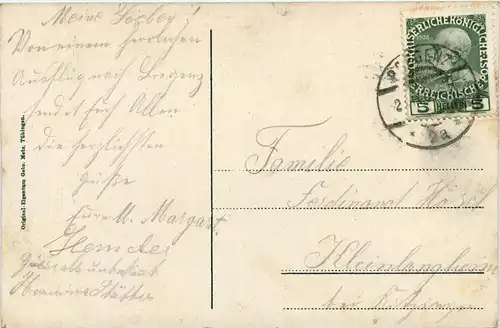 Meine Lieben!
Von einem herrlichen
Ausflug nach Bregenz
sendet Euch Allen
die herzlichsten
Grüße
Eure M. Margar
Grüße als unbekannt
Hermine
Original-Eigentum Gebr. Metz, Tübingen.
KAISERLICHE KÖNIGLICHE
ÖSTERREICHISCHE
5 HELLER 5
BREGENZ
2a
Familie
Ferdinand
Kleinlangheim
bei Kitzingen